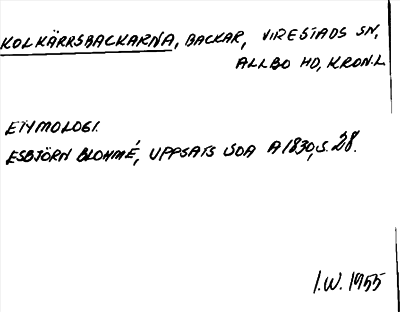 KOLKÄRRSBACKARNA, BACKAR, VIRESTADS SN,
ALLBO HD, KRON.L
ETYMOLOGI.
ESBJÖRN BLOHMÉ, UPPSATS SOA A 1830, S. 28.
I.W. 1955